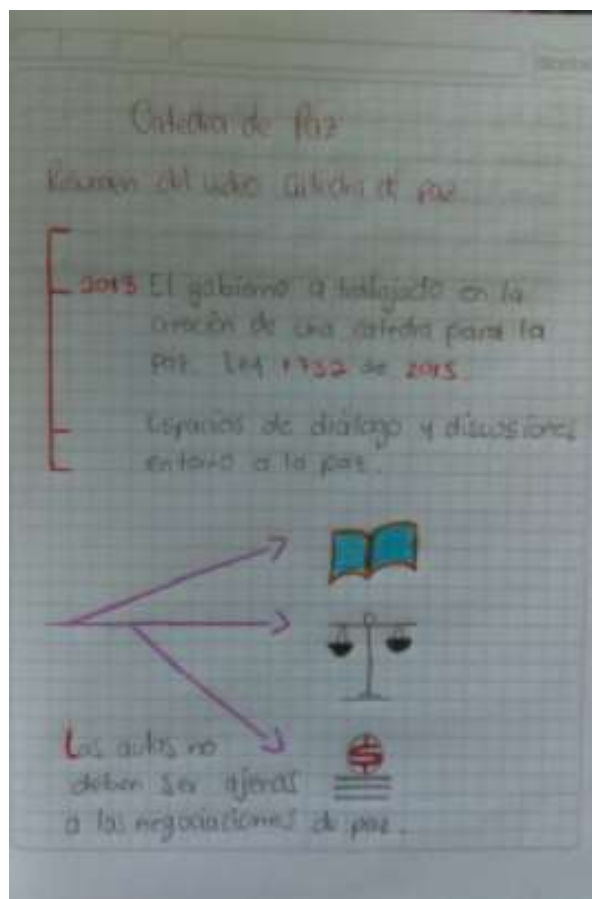 Catedra de Paz
Resumen del video Catedra de paz
2013 El gobierno a trabajado en la
creación de una catedra para la
paz. Ley 1732 de 2015
Espacios de diálogo y discusiones
entorno a la paz.
Las aulas no
deben ser ajenas
a las negociaciones de paz.
$